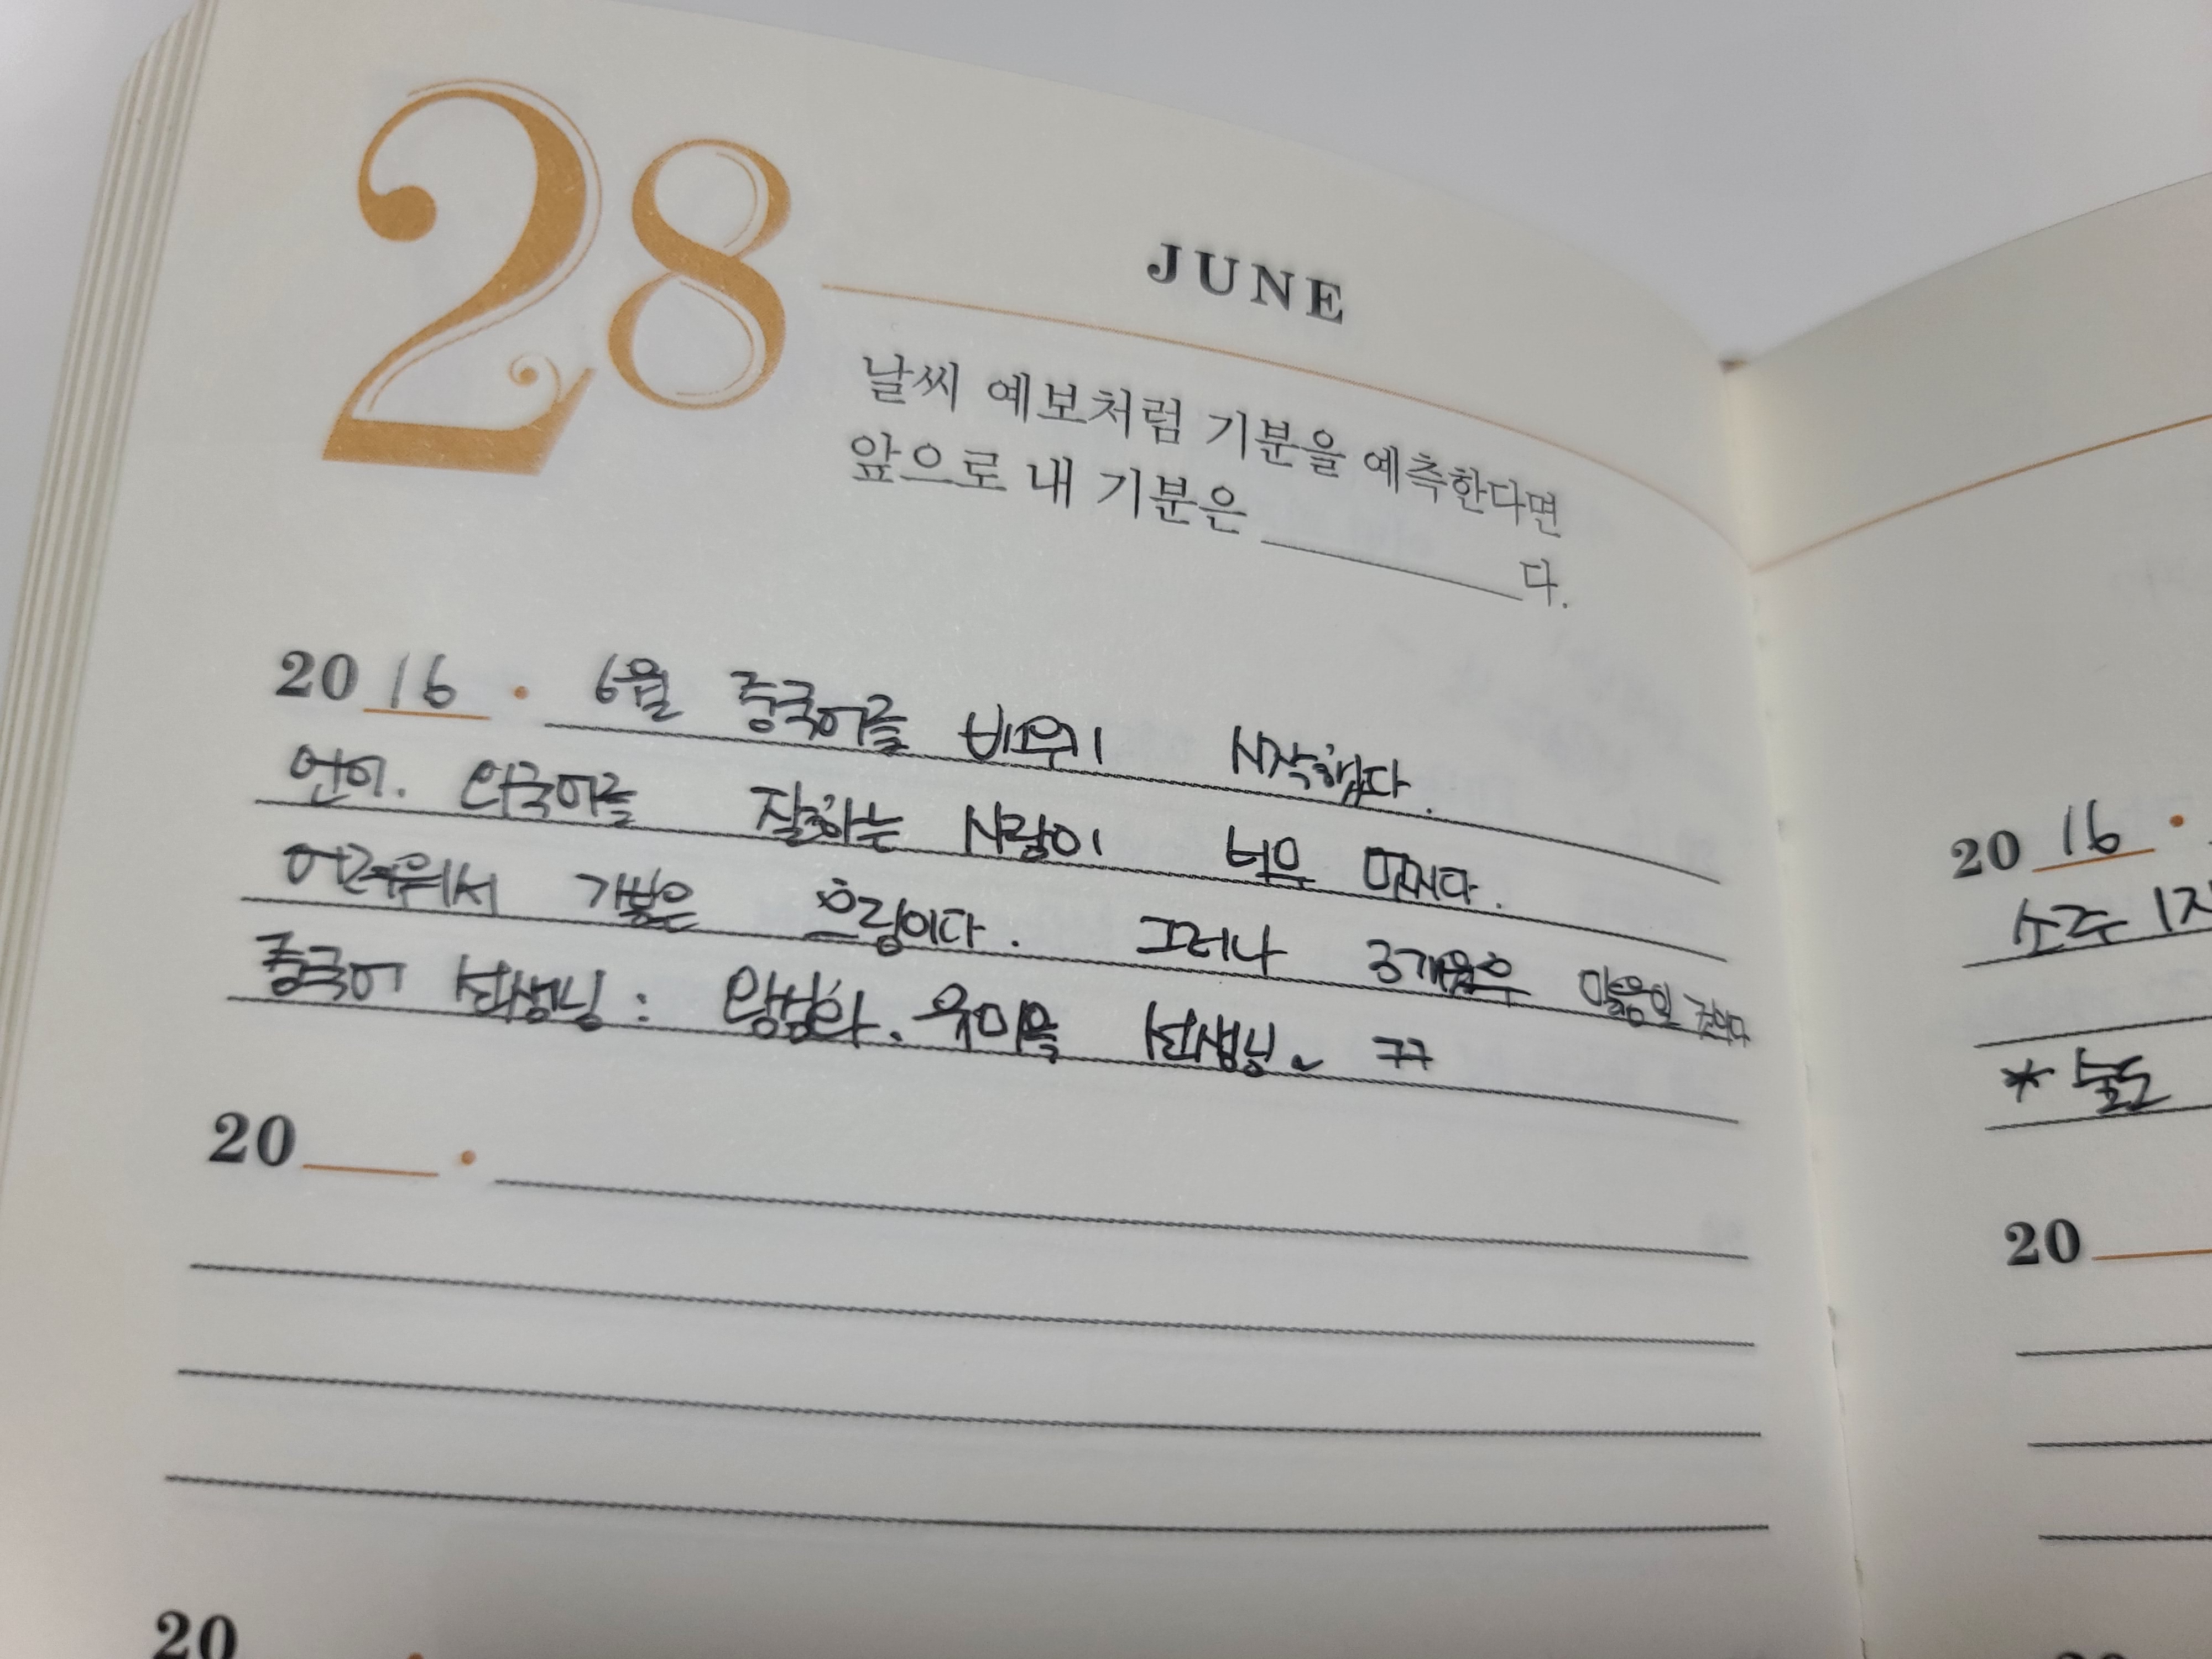 28
JUNE
날씨 예보처럼 기분을 예측한다면
앞으로 내 기분은
다.
2016 · 6월 중국어를 배우기 시작했다.
언어. 외국어를 잘하는 사람이 너무 멋지다.
어려워서 기분은 흐림이다. 그러나 3개월후 맑음일 것이다
중국어 선생님: 왕방화. 우미옥 선생님~ ㅋㅋ
20 ·
20
2016 ·
소주 1
* 술도
20